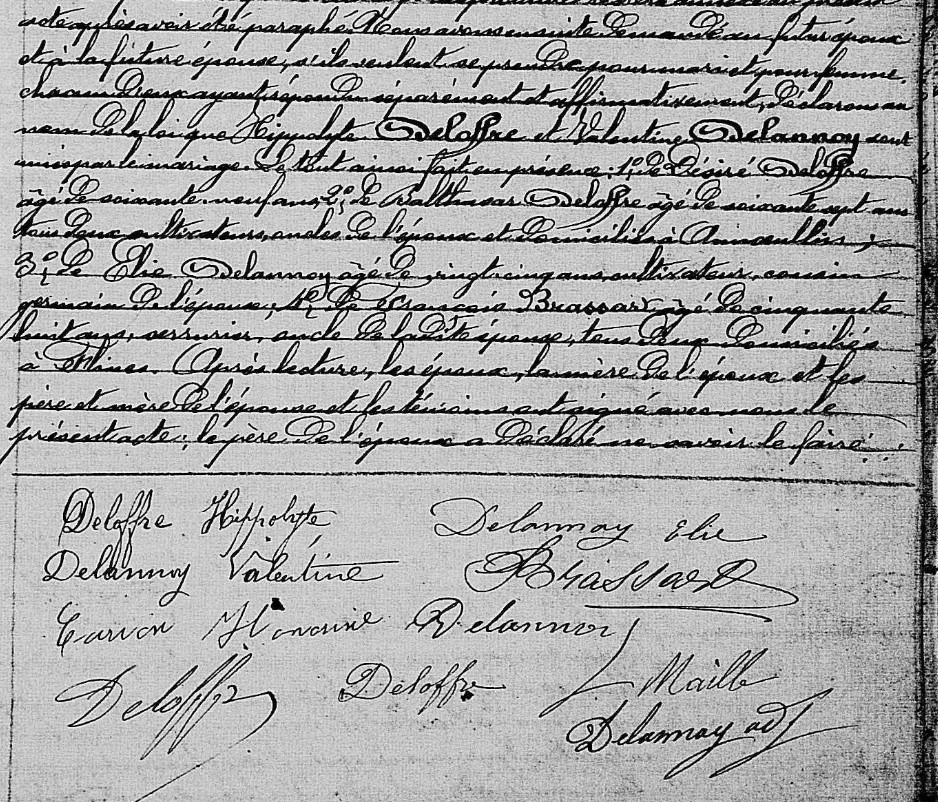 acte après avoir été paraphé. Nous avons ensuite demandé au futur époux
et à la future épouse, s'ils veulent se prendre pour mari et pour femme,
chacun d'eux ayant répondu séparément et affirmativement, déclarons au
nom de la loi que Hippolyte Deloffre et Valentine Delannoy sont
unis par le mariage. Le tout ainsi fait en présence: 1º, de Désiré Deloffre
âgé de soixante-neuf ans, 2º, de Balthasar Deloffre âgé de soixante sept ans
tous deux cultivateurs, oncles de l'époux et domiciliés à Annoeullin;
3º, de Elie Delannoy âgé de vingt cinq ans, cultivateur, cousin
germain de l'épouse; 4º, de François Brassart âgé de cinquante
huit ans, serrurier, oncle de la dite épouse, tous deux domiciliés
à Flines. Après lecture, les époux, la mère de l'époux et les
père et mère de l'épouse et les témoins ont signé avec nous le
présent acte; le père de l'époux a déclaré ne savoir le faire.
Deloffre Hippolyte Delannoy Elie
Delannoy Valentine Brassart
Carion Honorine Delannoy
Deloffre Deloffre L Maille
Delannoy adj